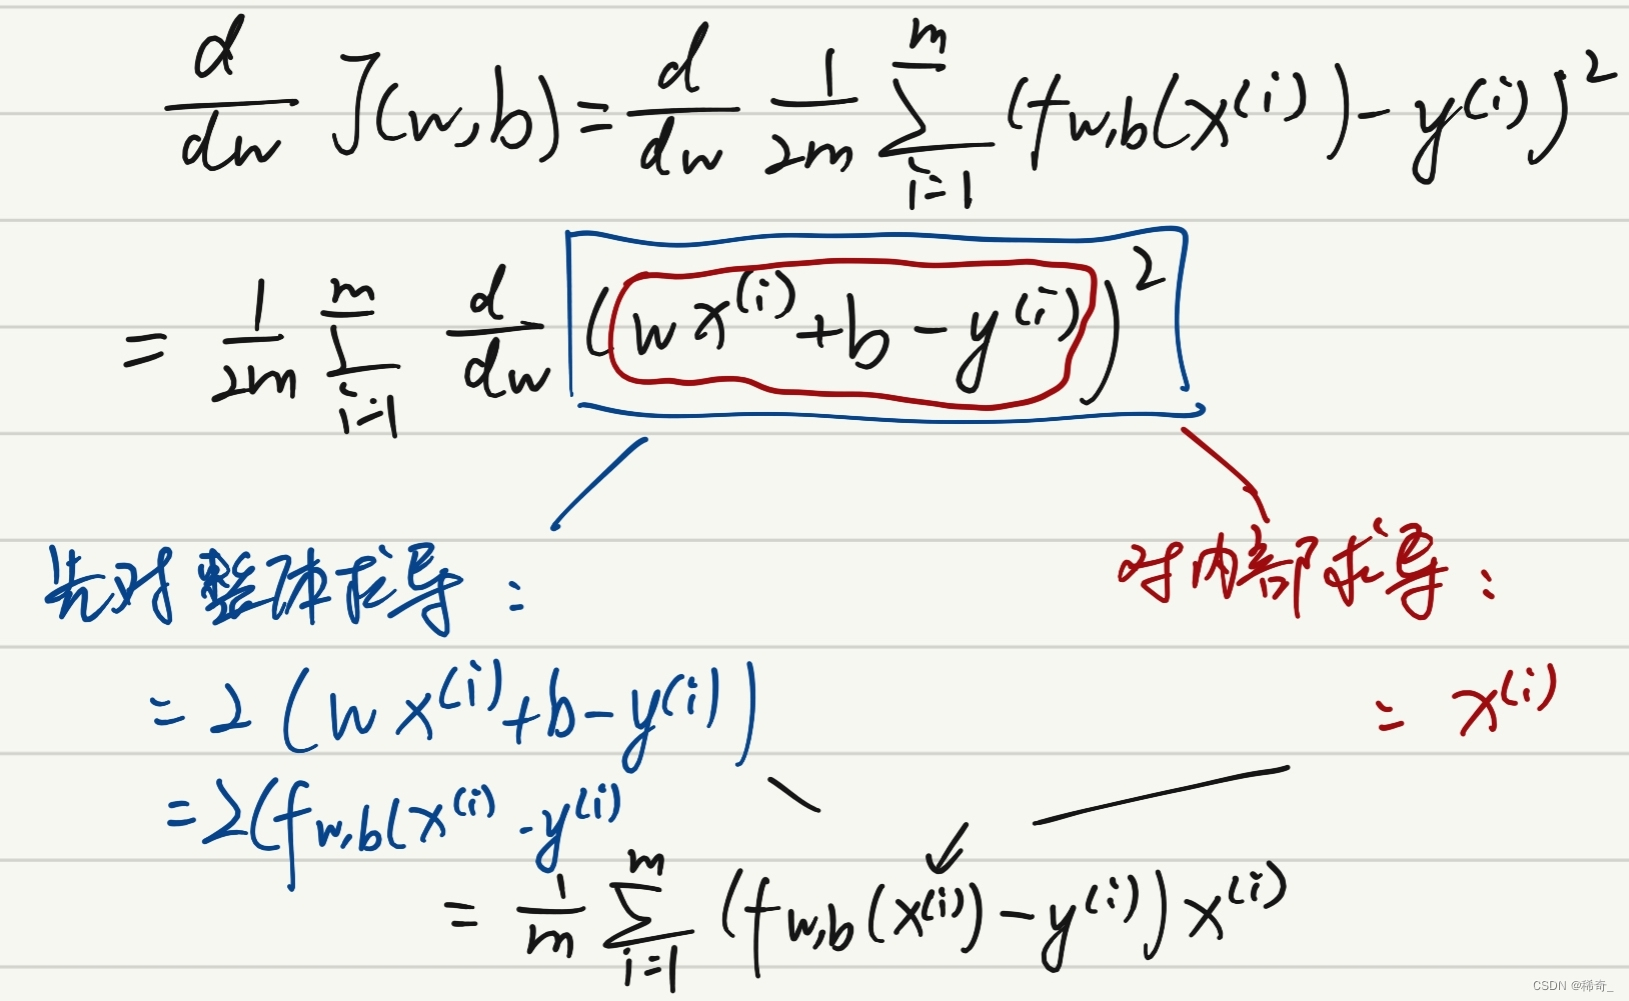 d/dw J(w,b) = d/dw 1/2m ∑_{i=1}^{m} (f_{w,b}(x^{(i)}) - y^{(i)})^2
= 1/2m ∑_{i=1}^{m} d/dw (wx^{(i)} + b - y^{(i)})^2
先对整体求导：
对内部求导：
= 2(wx^{(i)} + b - y^{(i)})
= x^{(i)}
= 2(f_{w,b}(x^{(i)} - y^{(i)}
= 1/m ∑_{i=1}^{m} (f_{w,b}(x^{(i)}) - y^{(i)})x^{(i)}
CSDN @稀奇_